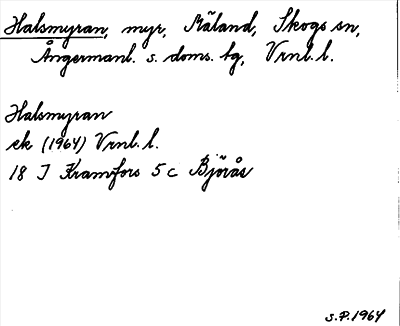 Halsmyran, myr, Mäland, Skogs sn,
Ångermanl. s. doms. tg, Vrnl. l.
Halsmyran
ek (1964) Vrnl. l.
18 J Kramfors 5 c Björås
S.P. 1964